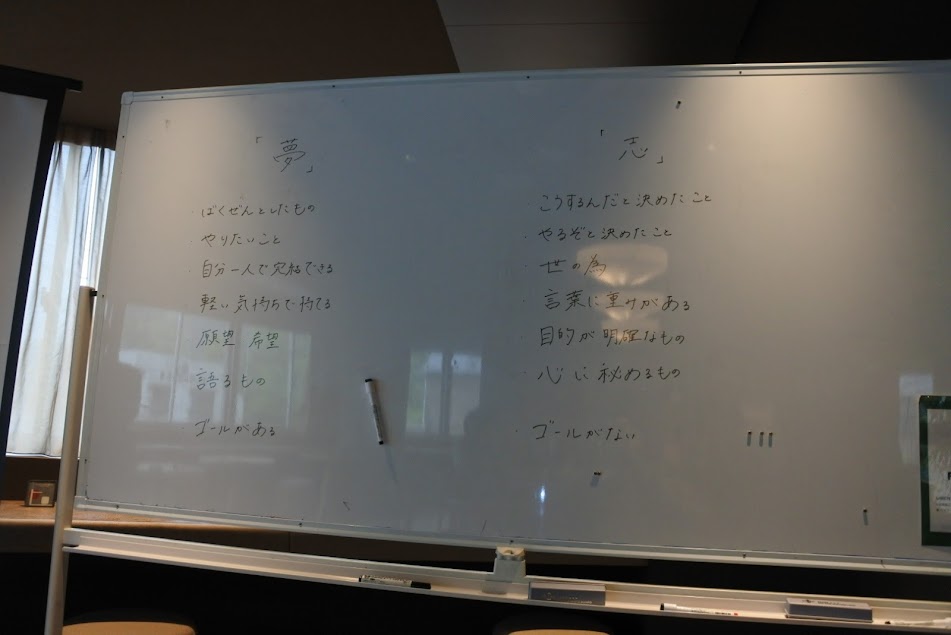 「夢」
・ばくぜんとしたもの
・やりたいこと
・自分一人で完結できる
・軽い気持ちで持てる
願望 希望
語るもの
・ゴールがある
「志」
・こうするんだと決めたこと
・やるぞと決めたこと
・世の為
・言葉に重みがある
・目的が明確なもの
・心に秘めるもの
・ゴールがない